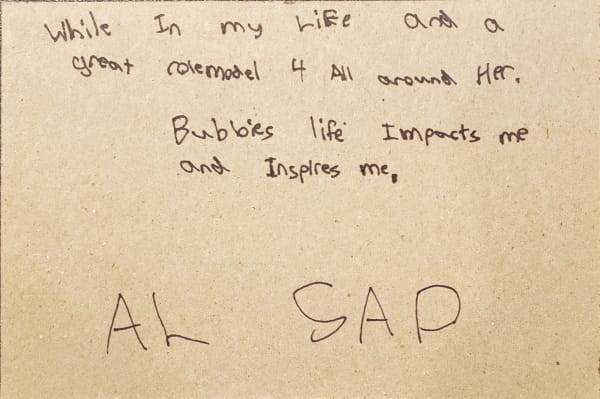 While In my Life and a
great rolemodel 4 All around Her.
Bubbies life Impacts me
and Inspires me.
AL SAP